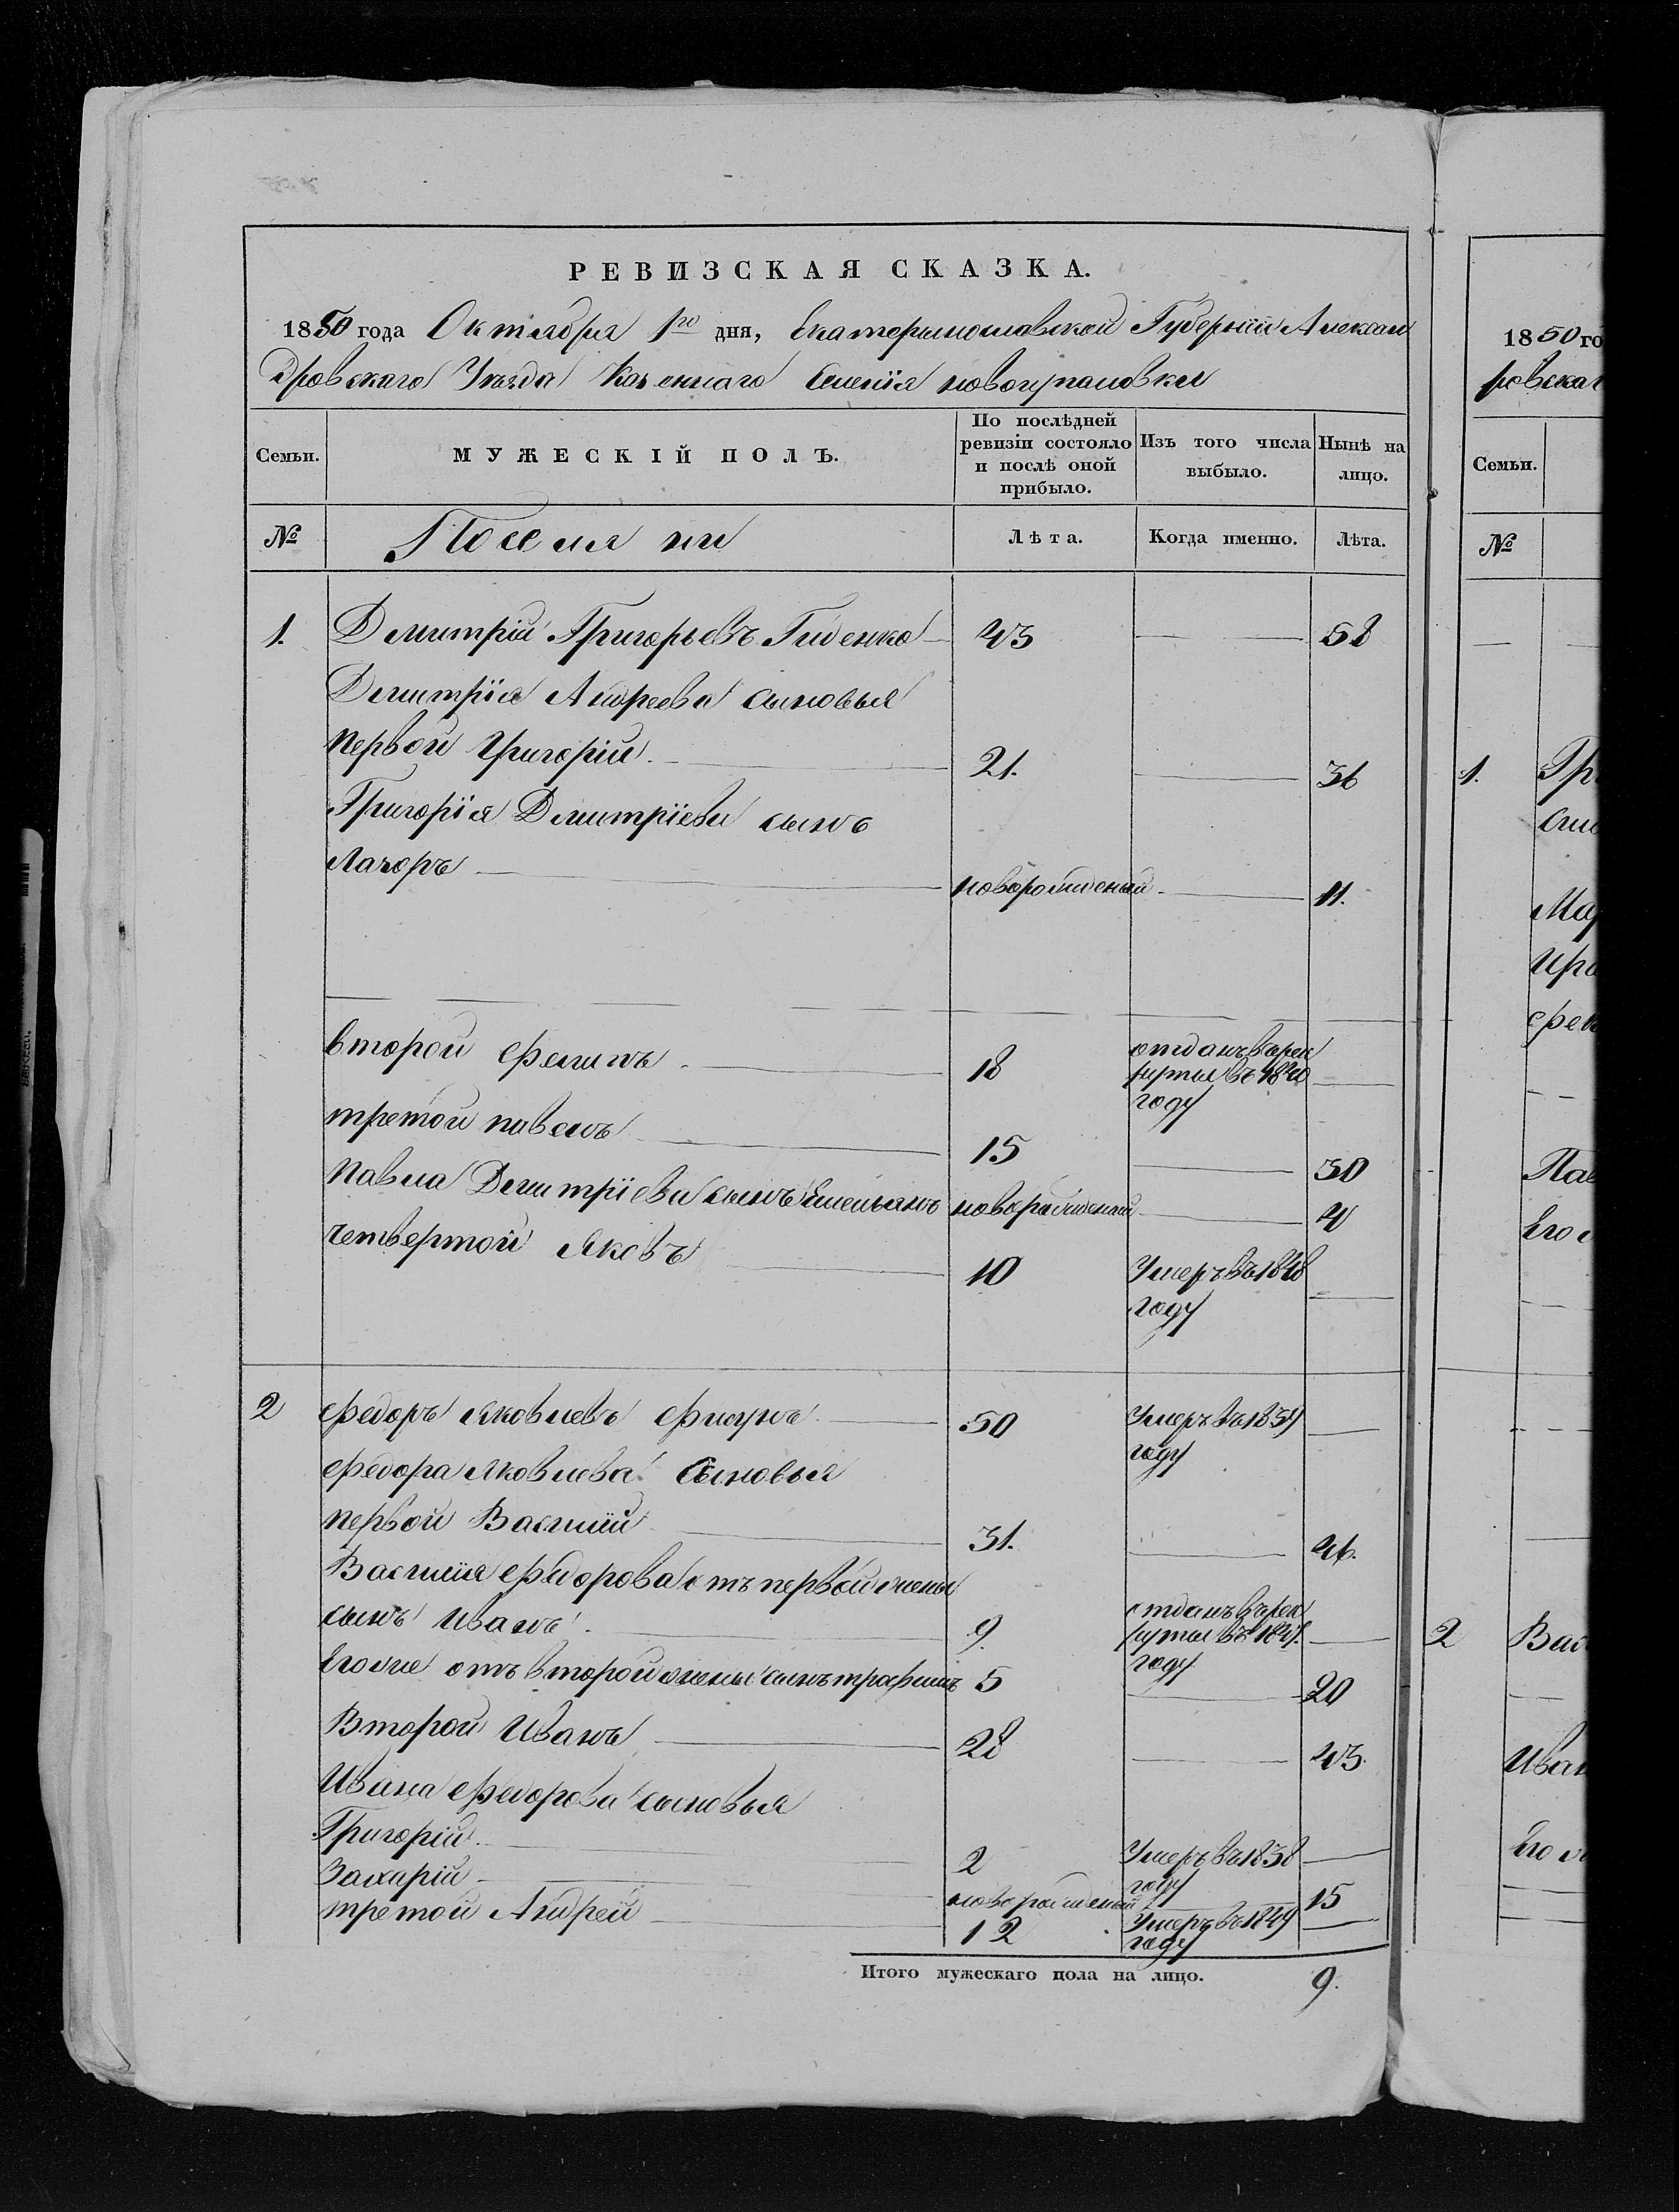 РЕВИЗСКАЯ СКАЗКА.
1850 года Октября 1го дня, Екатеринославской Губернии Алексан
дровскаго Уезда Казеннаго Селенія
Семьи.
МУЖЕСКІЙ ПОЛЪ.
По послѣдней ревизіи состояло и послѣ оной прибыло.
Изъ того числа выбыло.
Нынѣ на лицо.
№
Поселяни
Лѣта.
Когда именно.
Лѣта.
1. Дмитрій Григорьевъ Гиденко 43 58
Дмитрія Андреева сыновья
первой Григорій. 21. 36
Григорія Дмитріева сынъ
Лазоръ новорожденый 11.
второй Филипъ 18 отданъ в рек
руты въ 1840
году
третой павелъ 15 30
Павла Дмитріева сынъ Емельянъ новорожденый 4
четвертой Яковъ 10 Умеръ въ 1848
году
2 Федоръ Яковлевъ 50 Умеръ въ 1839
году
Федора Яковлева Сыновья
первой Василій 31. 46.
Василія Федорова отъ первой жены
сынъ Иванъ. 9. отданъ въ рек
руты въ 1847.
году
Егоже отъ второй жены сынъ трафимъ 5 20
Второй Иванъ 28 43.
Ивана Федорова сыновья
Григорій. 2 Умеръ въ 1838
году
Захарій новорожденый 15
третой Андрей 12 Умеръ въ 1849
году
Итого мужескаго пола на лицо. 9.
1850 го
ровскаг
Семьи.
№
1. Гр
Мар
Ира
Пав
Его
2 Вас
Иван
Его